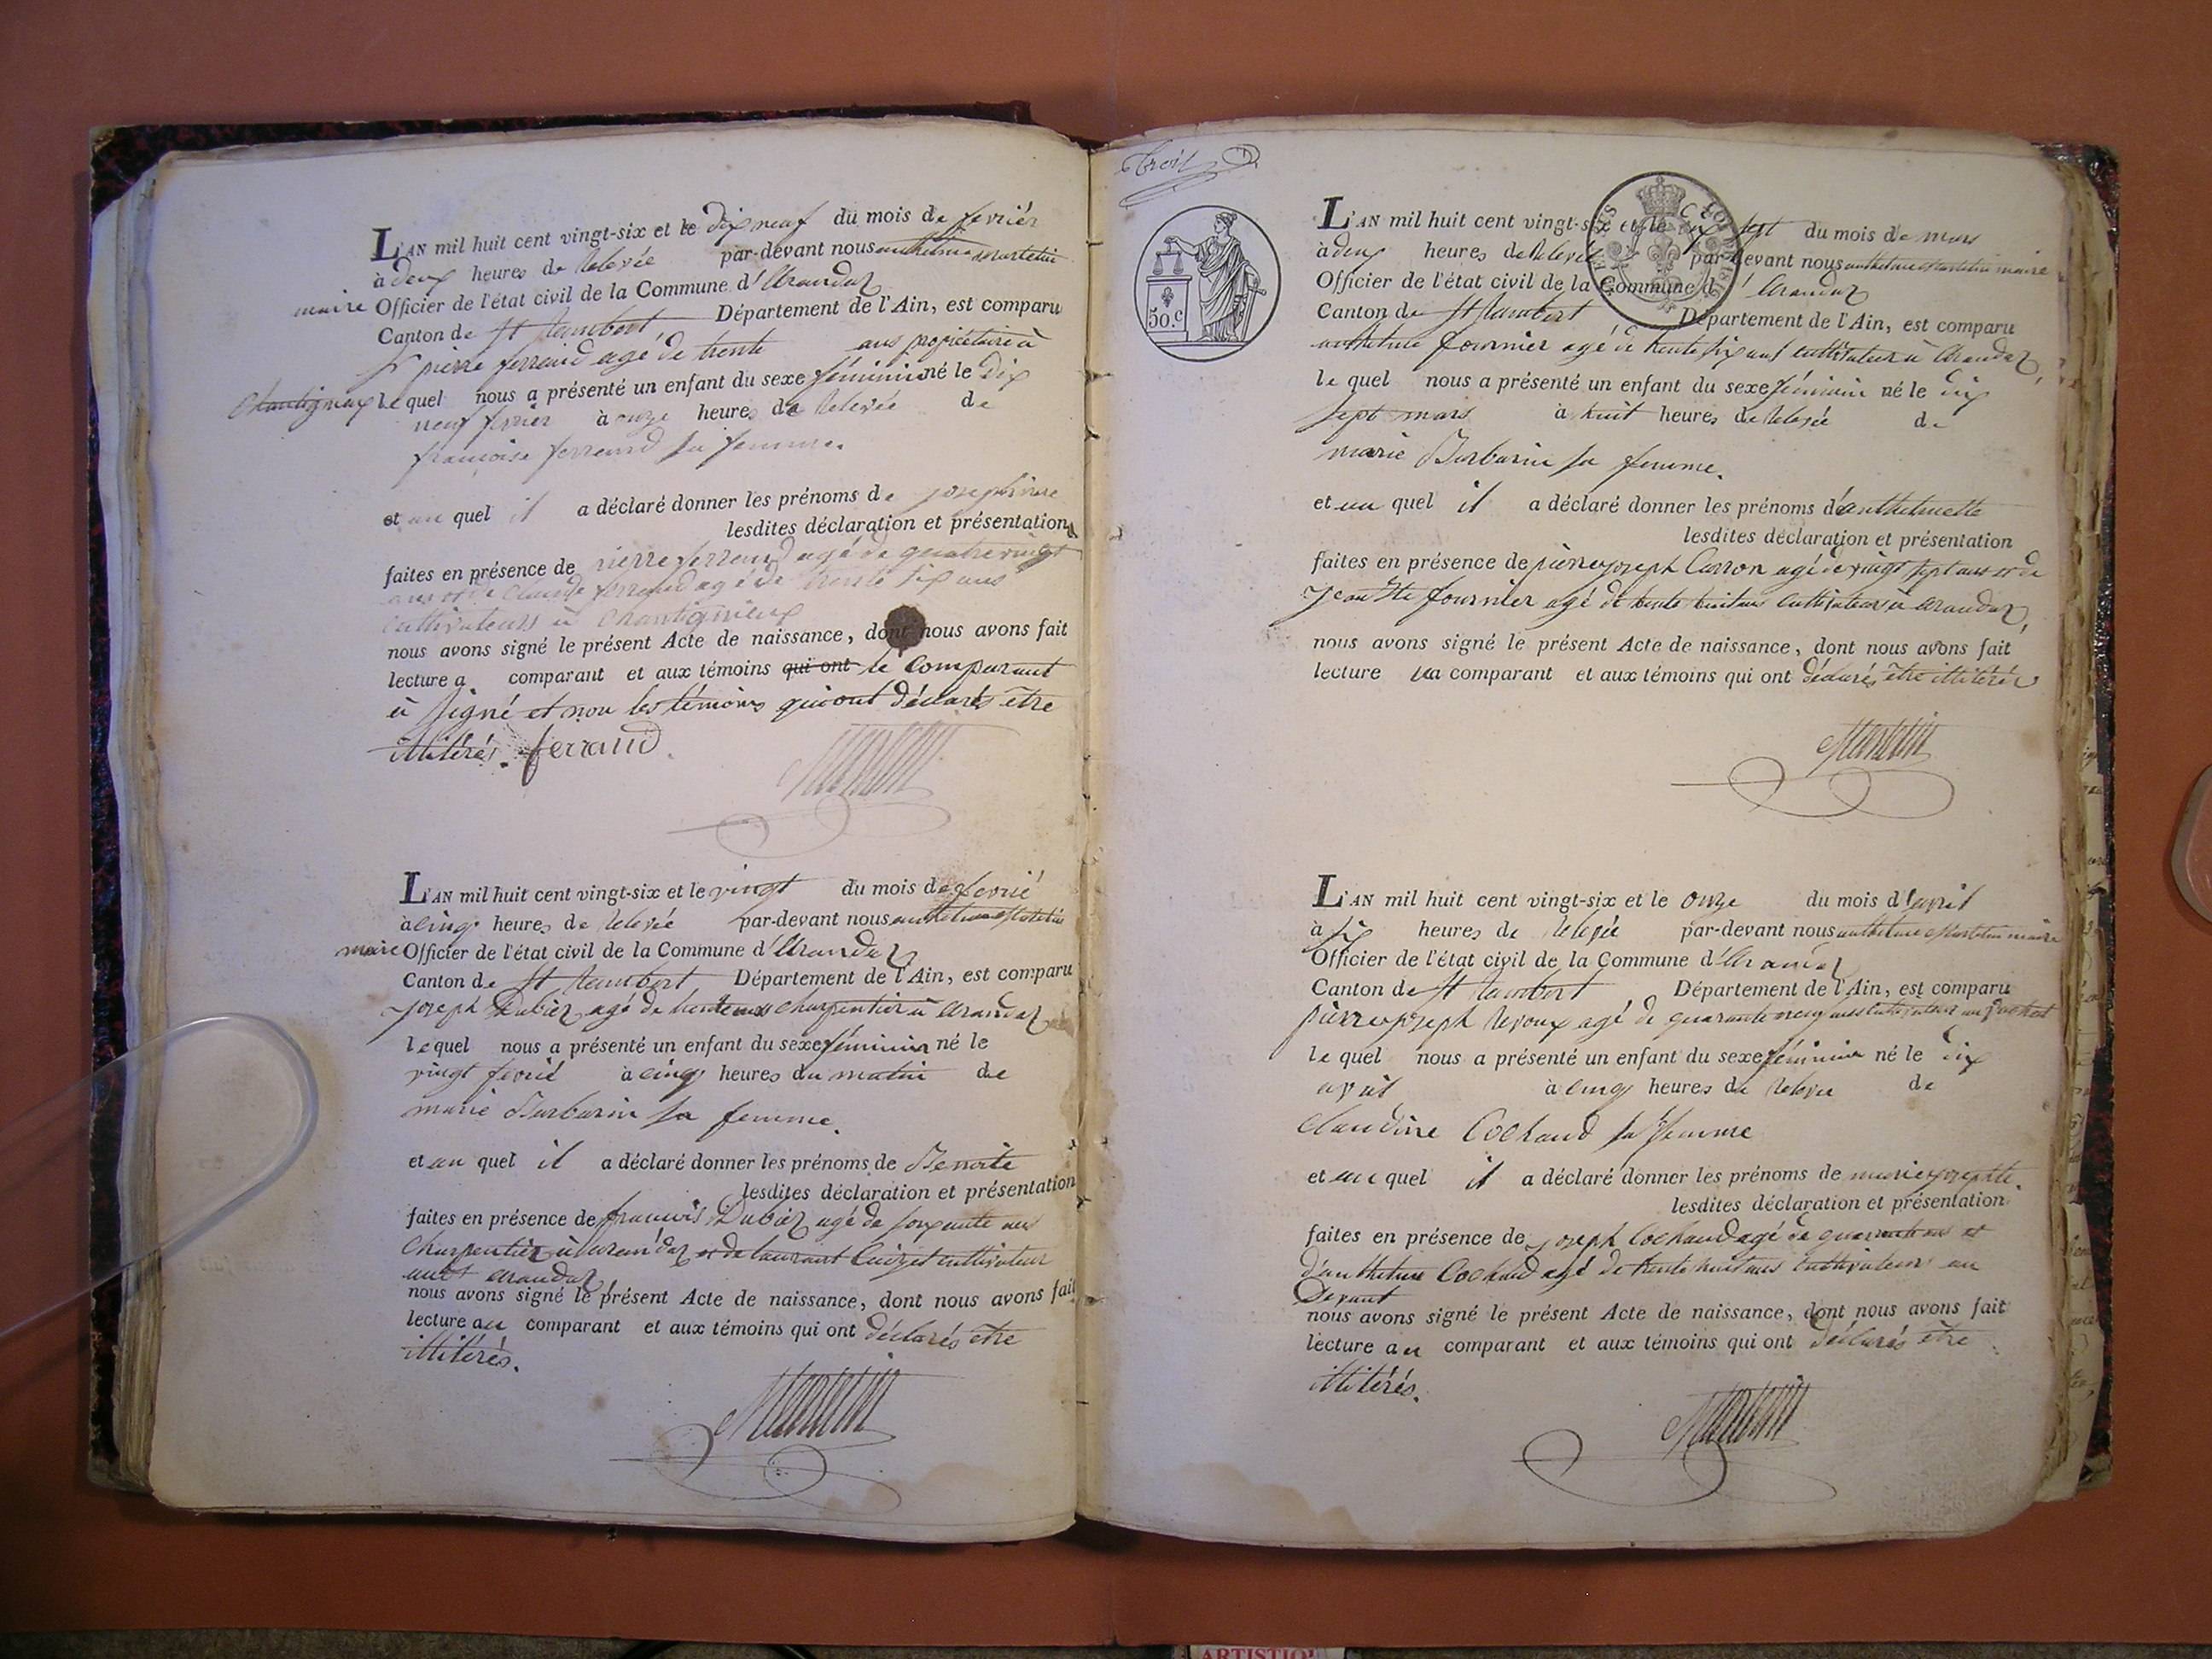 L'AN mil huit cent vingt-six et le dix neuf du mois de fevrier
à deux heures de relevée par-devant nous anthelme martelin
maire Officier de l'état civil de la Commune d'Arandaz
Canton de St Rambert Département de l'Ain, est comparu
Sr pierre ferrand agé de trente ans propriétaire à
Chantignieux le quel nous a présenté un enfant du sexe féminin né le Dix
neuf fevrier à onze heures de relevée de
françoise ferrand sa femme.
et au quel il a déclaré donner les prénoms de josephine
lesdites déclaration et présentation
faites en présence de pierre ferrand agé de quatre vingt
ans et de Claude ferrand agé de trente six ans
cultivateurs à Chantignieux
nous avons signé le présent Acte de naissance, dont nous avons fait
lecture a comparant et aux témoins qui ont le comparant
à signé et non les témoins qui ont déclarés etre
illitérés. ferrand
L'AN mil huit cent vingt-six et le vingt du mois de fevrié
à cinq heures de relevée par-devant nous anthelme Martelin
maire Officier de l'état civil de la Commune d'Arandaz
Canton de St Rambert Département de l'Ain, est comparu
joseph Dubiez agé de trente ans charpentier à Arandaz
le quel nous a présenté un enfant du sexe féminin né le
vingt fevrié à cinq heures du matin de
marie Barbarin sa femme.
et au quel il a déclaré donner les prénoms de Benoite
lesdites déclaration et présentation
faites en présence de françois Dubiez agé de soixante ans
charpentier à arandaz et de laurant cultivateur
arandaz
nous avons signé le présent Acte de naissance, dont nous avons fait
lecture au comparant et aux témoins qui ont déclarés etre
illitérés.
Martelin
50.c
L'AN mil huit cent vingt-six et le dix sept du mois de mars
à deux heures de relevée par-devant nous anthelme Martelin maire
Officier de l'état civil de la Commune d'Arandaz
Canton de St Rambert Département de l'Ain, est comparu
anthelme fournier agé de trente six ans cultivateur à Arandaz,
le quel nous a présenté un enfant du sexe féminin né le dix
sept mars à huit heures de relevée de
marie Barbarin sa femme.
et au quel il a déclaré donner les prénoms d'anthelmette
lesdites déclaration et présentation
faites en présence de pierre joseph Carron agé de vingt sept ans et de
jean Bte fournier agé de trente huit ans cultivateurs à arandaz,
nous avons signé le présent Acte de naissance, dont nous avons fait
lecture au comparant et aux témoins qui ont déclarés etre illitérés
Martelin
L'AN mil huit cent vingt-six et le onze du mois d'avril
à six heures de relevée par-devant nous anthelme Martelin maire
Officier de l'état civil de la Commune d'Arandaz
Canton de St Rambert Département de l'Ain, est comparu
pierre joseph agé de quarante neuf ans cultivateur au
le quel nous a présenté un enfant du sexe féminin né le dix
avril à cinq heures de relevée de
claudine Cochand sa femme
et au quel il a déclaré donner les prénoms de marie josephte.
lesdites déclaration et présentation
faites en présence de joseph Cochand agé de quarante ans et
d'anthelme Cochand agé de trente huit ans cultivateurs au
nous avons signé le présent Acte de naissance, dont nous avons fait
lecture au comparant et aux témoins qui ont déclarés être
illitérés.
Martelin